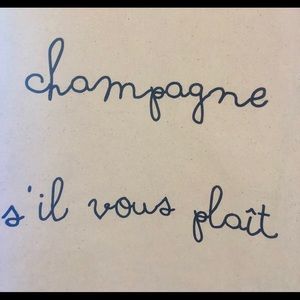 champagne
s'il vous plaît